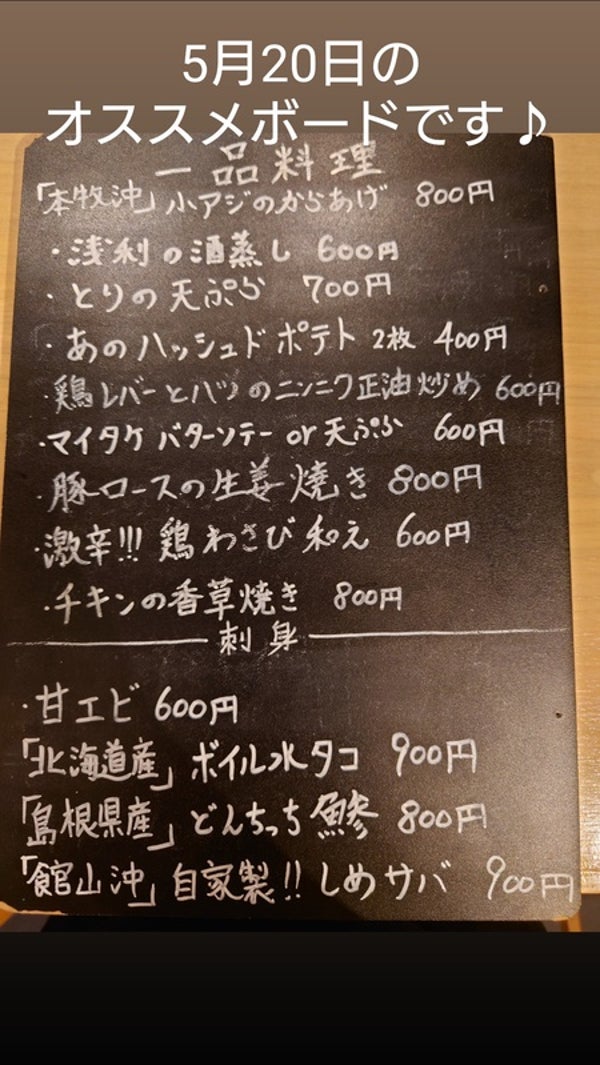 5月20日の
オススメボードです♪
一品料理
「本牧沖」小アジのからあげ 800円
・浅利の酒蒸し 600円
・とりの天ぷら 700円
・あのハッシュドポテト 2枚 400円
・鶏レバーとハツのニンニク正油炒め 600円
・マイタケバターソテー or 天ぷら 600円
・豚ロースの生姜焼き 800円
・激辛!!! 鶏わさび和え 600円
・チキンの香草焼き 800円
刺身
・甘エビ 600円
「北海道産」ボイル水タコ 900円
「島根県産」どんちっち鯵 800円
「館山沖」自家製!! しめサバ 900円